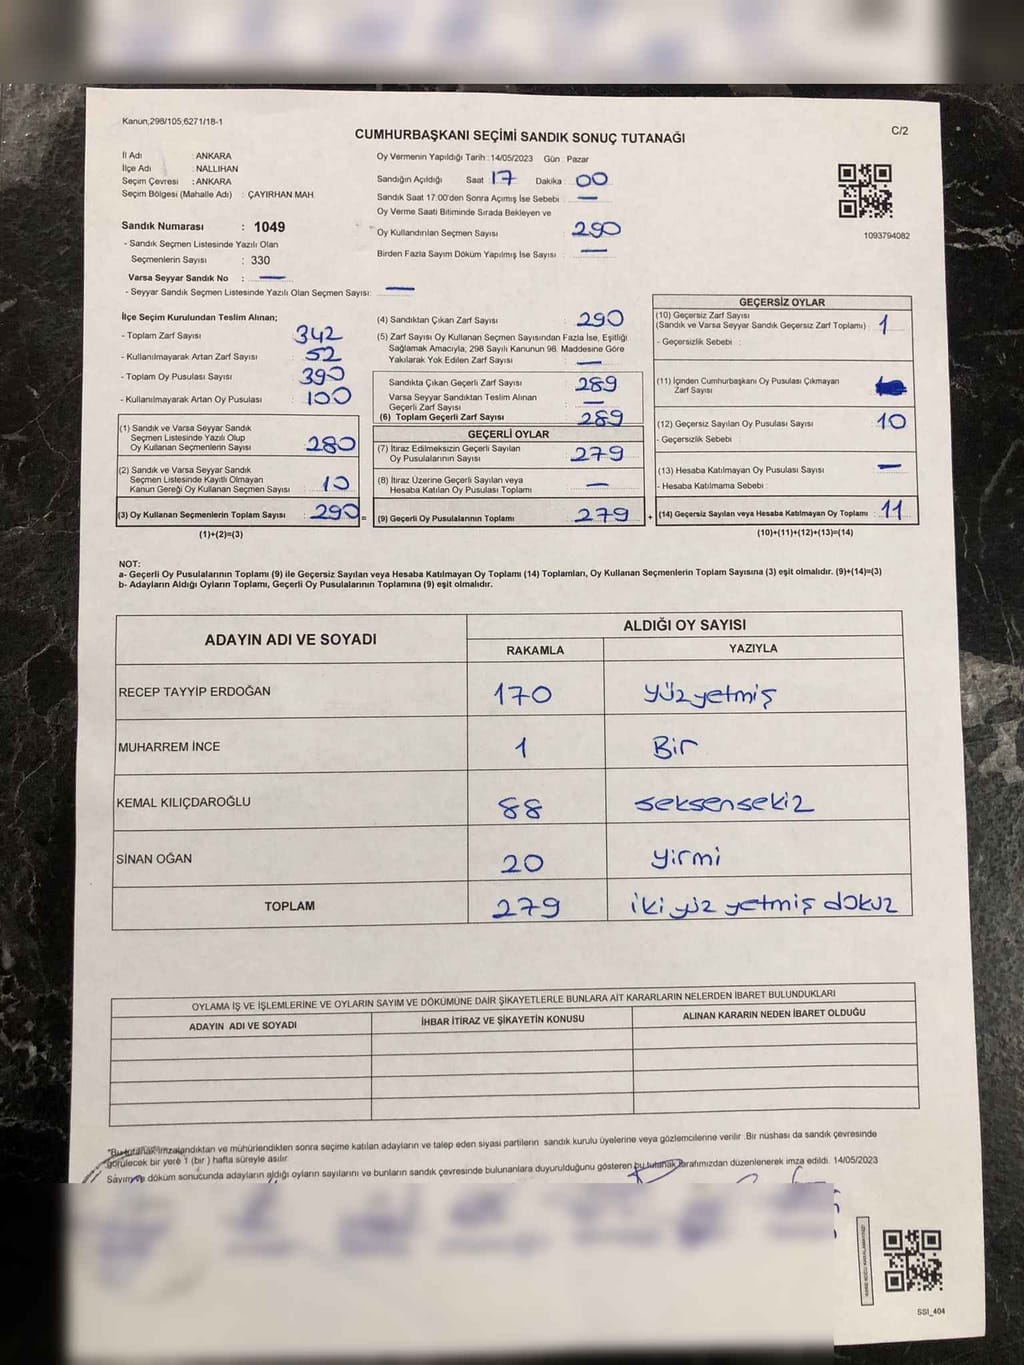 Kanun,298/105,6271/18-1
C/2
CUMHURBAŞKANI SEÇİMİ SANDIK SONUÇ TUTANAĞI
İl Adı : ANKARA
İlçe Adı : NALLIHAN
Seçim Çevresi : ANKARA
Seçim Bölgesi (Mahalle Adı) : ÇAYIRHAN MAH.
Sandık Numarası : 1049
- Sandık Seçmen Listesinde Yazılı Olan
Seçmenlerin Sayısı : 330
Varsa Seyyar Sandık No : —
- Seyyar Sandık Seçmen Listesinde Yazılı Olan Seçmen Sayısı: —
Oy Vermenin Yapıldığı Tarih :14/05/2023 Gün : Pazar
Sandığın Açıldığı Saat 17 Dakika : 00
Sandık Saat 17:00'den Sonra Açımış İse Sebebi : —
Oy Verme Saati Bitiminde Sırada Bekleyen ve
Oy Kullandırılan Seçmen Sayısı : 290
Birden Fazla Sayım Döküm Yapılmış İse Sayısı : —
1093794082
İlçe Seçim Kurulundan Teslim Alınan;
- Toplam Zarf Sayısı : 342
- Kullanılmayarak Artan Zarf Sayısı : 52
- Toplam Oy Pusulası Sayısı : 390
- Kullanılmayarak Artan Oy Pusulası : 100
(1) Sandık ve Varsa Seyyar Sandık
Seçmen Listesinde Yazılı Olup
Oy Kullanan Seçmenlerin Sayısı : 280
(2) Sandık ve Varsa Seyyar Sandık
Seçmen Listesinde Kayıtlı Olmayan
Kanun Gereği Oy Kullanan Seçmen Sayısı : 10
(3) Oy Kullanan Seçmenlerin Toplam Sayısı : 290 =
(1)+(2)=(3)
(4) Sandıktan Çıkan Zarf Sayısı : 290
(5) Zarf Sayısı Oy Kullanan Seçmen Sayısından Fazla İse, Eşitliği
Sağlamak Amacıyla; 298 Sayılı Kanunun 98. Maddesine Göre
Yakılarak Yok Edilen Zarf Sayısı : —
Sandıkta Çıkan Geçerli Zarf Sayısı : 289
Varsa Seyyar Sandıktan Teslim Alınan
Geçerli Zarf Sayısı : —
(6) Toplam Geçerli Zarf Sayısı : 289
GEÇERLİ OYLAR
(7) İtiraz Edilmeksizin Geçerli Sayılan
Oy Pusulalarının Sayısı : 279
(8) İtiraz Üzerine Geçerli Sayılan veya
Hesaba Katılan Oy Pusulası Toplamı : —
(9) Geçerli Oy Pusulalarının Toplamı : 279 +
GEÇERSİZ OYLAR
(10) Geçersiz Zarf Sayısı
(Sandık ve Varsa Seyyar Sandık Geçersiz Zarf Toplamı) : 1
- Geçersizlik Sebebi :
(11) İçinden Cumhurbaşkanı Oy Pusulası Çıkmayan
Zarf Sayısı :
(12) Geçersiz Sayılan Oy Pusulası Sayısı : 10
- Geçersizlik Sebebi :
(13) Hesaba Katılmayan Oy Pusulası Sayısı : —
- Hesaba Katılmama Sebebi :
(14) Geçersiz Sayılan veya Hesaba Katılmayan Oy Toplamı : 11
(10)+(11)+(12)+(13)=(14)
NOT:
a- Geçerli Oy Pusulalarının Toplamı (9) ile Geçersiz Sayılan veya Hesaba Katılmayan Oy Toplamı (14) Toplamları, Oy Kullanan Seçmenlerin Toplam Sayısına (3) eşit olmalıdır. (9)+(14)=(3)
b- Adayların Aldığı Oyların Toplamı, Geçerli Oy Pusulalarının Toplamına (9) eşit olmalıdır.
ADAYIN ADI VE SOYADI ALDIĞI OY SAYISI
RAKAMLA YAZIYLA
RECEP TAYYİP ERDOĞAN 170 yüzyetmiş
MUHARREM İNCE 1 Bir
KEMAL KILIÇDAROĞLU 88 seksensekiz
SİNAN OĞAN 20 yirmi
TOPLAM 279 iki yüz yetmiş dokuz
OYLAMA İŞ VE İŞLEMLERİNE VE OYLARIN SAYIM VE DÖKÜMÜNE DAİR ŞİKAYETLERLE BUNLARA AİT KARARLARIN NELERDEN İBARET BULUNDUKLARI
ADAYIN ADI VE SOYADI İHBAR İTİRAZ VE ŞİKAYETİN KONUSU ALINAN KARARIN NEDEN İBARET OLDUĞU
"Bu tutanak imzalandıktan ve mühürlendikten sonra seçime katılan adayların ve talep eden siyasi partilerin sandık kurulu üyelerine veya gözlemcilerine verilir. Bir nüshası da sandık çevresinde
görülecek bir yere 1 (bir ) hafta süreyle asılır.
Sayım ve döküm sonucunda adayların aldığı oyların sayılarını ve bunların sandık çevresinde bulunanlara duyurulduğunu gösteren bu tutanak tarafımızdan düzenlenerek imza edildi. 14/05/2023
SSI_404